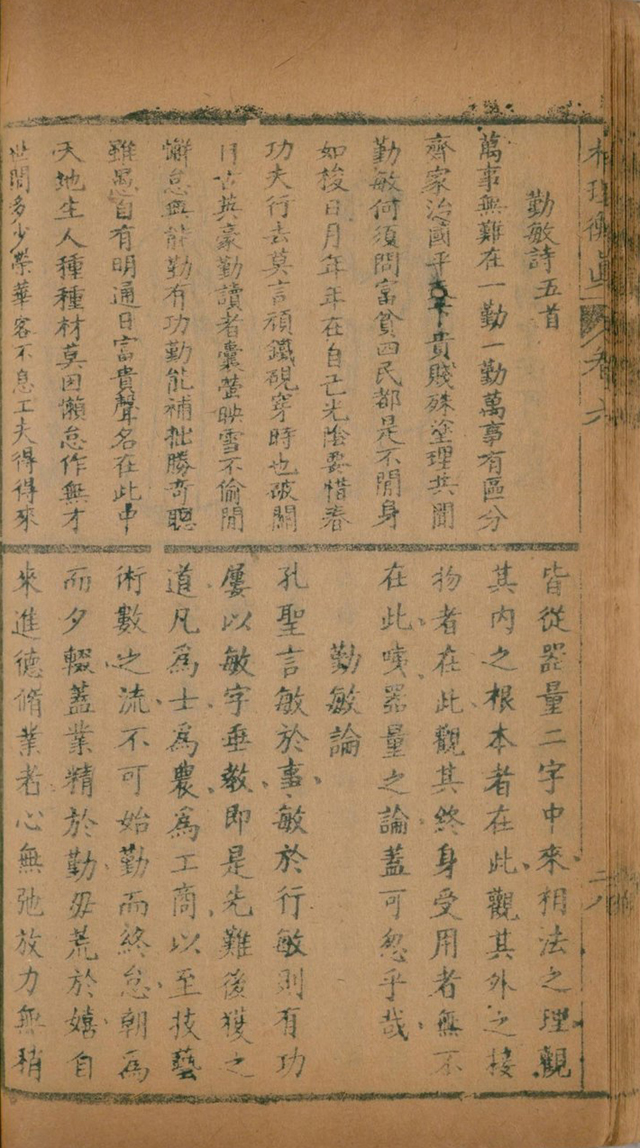 相理衡真 卷六
勤敏詩五首
萬事無難在一勤一勤萬事有區分
齊家治國平天下貴賤殊塗理共聞
勤敏何須問富貧四民都是不閒身
如梭日月年年在自己光陰要惜春
功夫行去莫言頑鐵硯穿時也破關
自古英豪勤讀者囊螢映雪不偷閒
懈怠無能勤有功勤能補拙勝奇聰
雖愚自有明通日富貴聲名在此中
天地生人種種材莫因懶怠作無才
世間多少榮華客不息工夫得得來
皆從器量二字中來相法之理觀
其內之根本者在此觀其外之接
物者在此觀其終身受用者無不
在此噫器量之論蓋可忽乎哉
勤敏論
孔聖言敏於事敏於行敏則有功
屢以敏字垂教即是先難後獲之
道凡爲士爲農爲工商以至技藝
術數之流不可始勤而終怠朝爲
而夕輟蓋業精於勤毋荒於嬉自
來進德脩業者心無弛放力無稍
二八